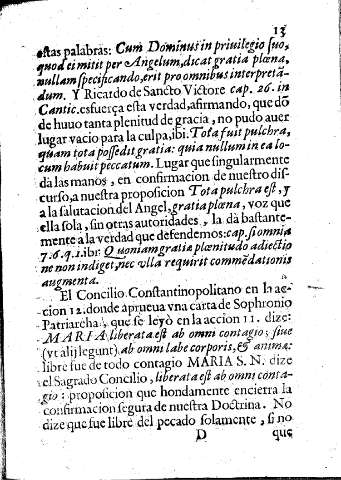 13
estas palabras: Cum Dominus in priuilegio suo,
quod ei mitit per Angelum, dicat gratia plœna,
nullam specificando, erit pro omnibus interpretã-
dum. Y Ricardo de Sancto Victore cap. 26. in
Cantic. esfuerça esta verdad, afirmando, que dõ
de huuo tanta plenitud de gracia, no pudo auer
lugar vacio para la culpa, ibi: Tota fuit pulchra,
quam tota possedit gratia: quia nullum in ea lo-
cum habuit peccatum. Lugar que singularmente
dà las manos, en confirmacion de nuestro dis-
curso, a nuestra proposicion Tota pulchra est, y
a la salutacion del Angel, gratia plœna, voz que
ella sola, sin otras autoridades, la dà bastante-
mente a la verdad que defendemos: cap. si omnia
7. 6. q. 1. ibi: Quoniam gratiæ plœnitudo adiectio
ne non indiget, nec vlla requirit commẽdationis
augmenta.
El Concilio Constantinopolitano en la ac-
cion 12. donde aprueua vna carta de Sophronio
Patriarcha, que se leyò en la accion 11. dize:
MARIA liberata est ab omni contagio; siue
(vt alij legunt) ab omni labe corporis, & animæ:
libre fue de todo contagio MARIA S. N. dize
el Sagrado Concilio, liberata est ab omni conta-
gio: proposicion que hondamente encierra la
confirmacion segura de nuestra Doctrina. No
dize que fue libre del pecado solamente, si no
D que